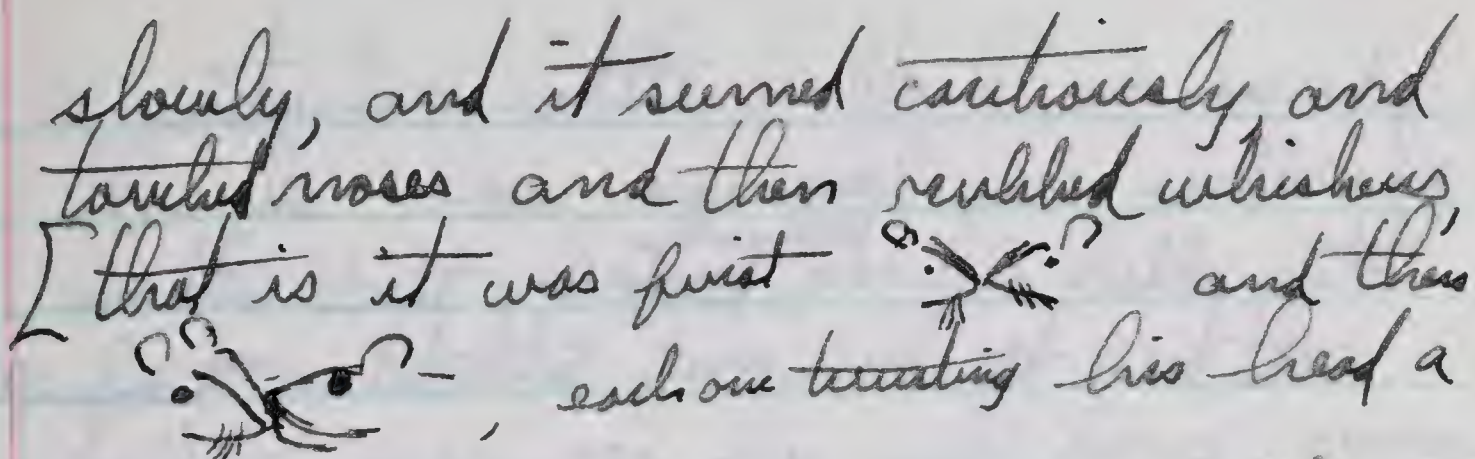 slowly, and it seemed cautiously, and
touched noses and then rubbed whiskers,
[that is it was first and then
, each one twisting his head a